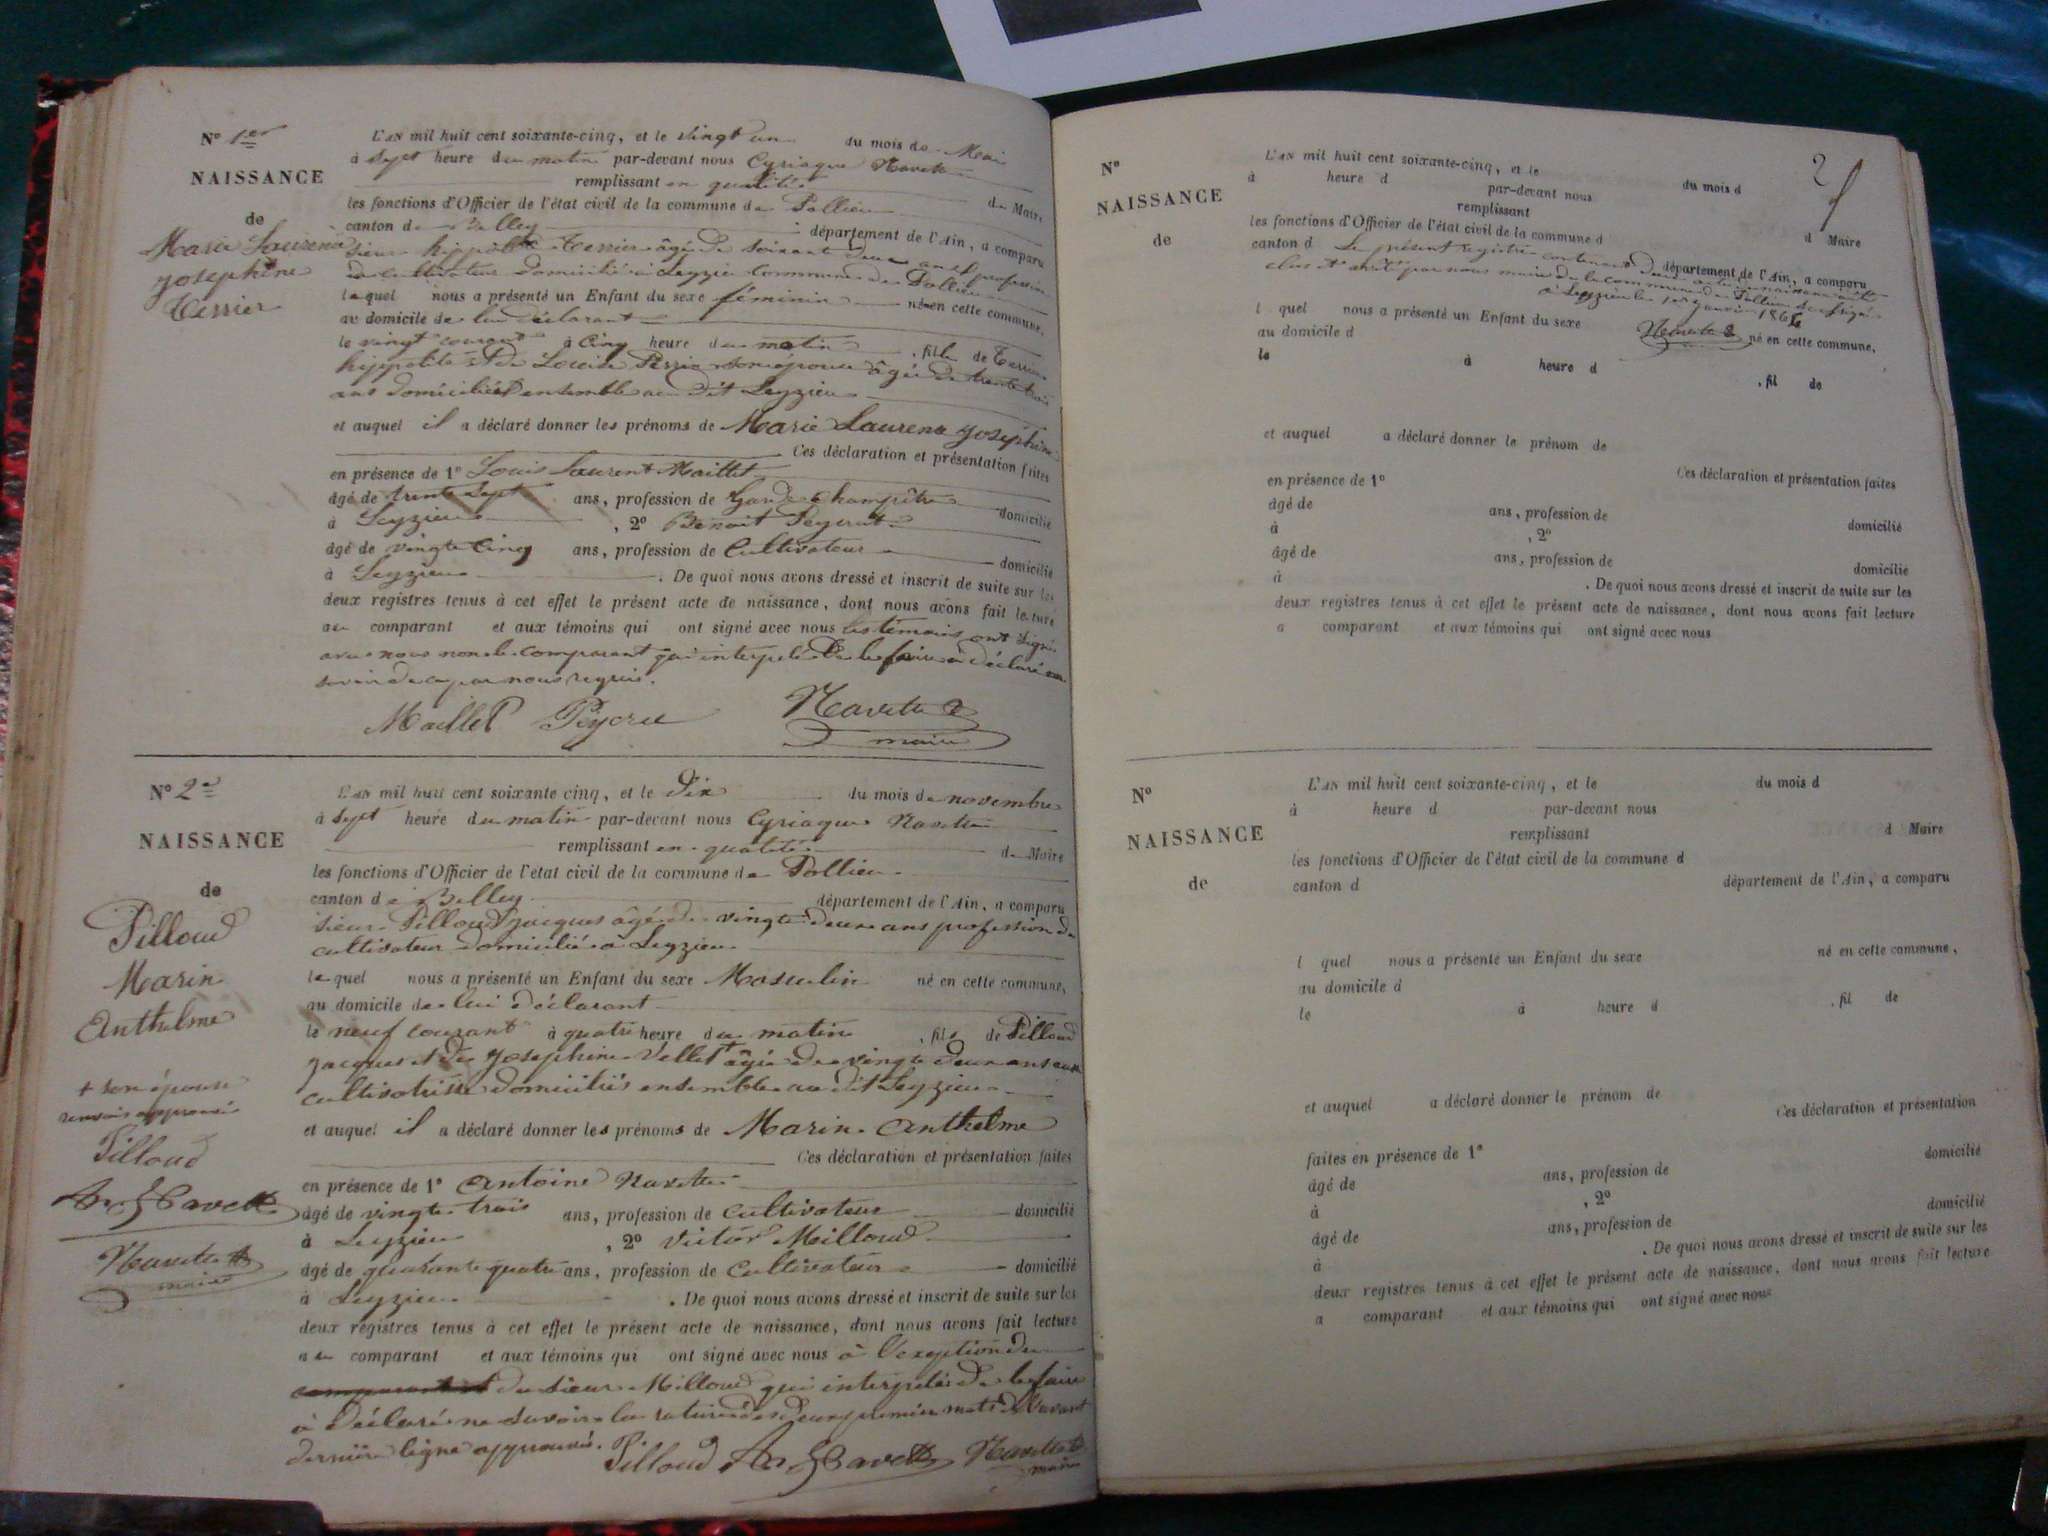 N° 1er
NAISSANCE
de
Marie Laurence
Josephine
Terrier
L'AN mil huit cent soixante-cinq, et le vingt un du mois de Mai
à sept heure du matin par-devant nous Cyriaque Navette
remplissant en qualité de Maire
les fonctions d'Officier de l'état civil de la commune de Pollieu
canton de Belley département de l'Ain, a comparu
sieur hippolite Terrier âgé de soixante deux ans profession
de cultivateur domicilié à Leyzieu commune de Pollieu
lequel nous a présenté un Enfant du sexe féminin né en cette commune,
au domicile de lui déclarant
le vingt courant à Cinq heure du matin , fille de Terrier
hippolite et de Louise son épouse âgée de trente trois
ans domiciliés ensemble au dit Leyzieu
et auquel il a déclaré donner les prénoms de Marie Laurence Josephine
Ces déclaration et présentation faites
en présence de 1° Louis Laurent Maillet
âgé de trente sept ans, profession de Garde champêtre domicilié
à Leyzieu , 2° Benoit Peycrut
âgé de vingt Cinq ans, profession de Cultivateur domicilié
à Leyzieu . De quoi nous avons dressé et inscrit de suite sur les
deux registres tenus à cet effet le présent acte de naissance, dont nous avons fait lecture
au comparant et aux témoins qui ont signé avec nous les témoins ont signé
avec nous non le comparant qui interpelé de le faire a déclaré ne
savoir de ce par nous requis.
Maillet Peycru Navette
maire
N° 2e
NAISSANCE
de
Pilloud
Marin
Anthelme
+ son épouse
renvois approuvé
Pilloud
Navette
maire
L'AN mil huit cent soixante cinq, et le dix du mois de novembre
à sept heure du matin par-devant nous Cyriaque Navette
remplissant en qualité de Maire
les fonctions d'Officier de l'état civil de la commune de Pollieu
canton de Belley département de l'Ain, a comparu
sieur Pilloud jacques âgé de vingt deux ans profession de
cultivateur domicilié à Leyzieu
lequel nous a présenté un Enfant du sexe Masculin né en cette commune,
au domicile de lui déclarant
le neuf courant à quatre heure du matin , fils de Pilloud
jacques et de Josephine Vellet + âgée de vingt deux ans aussi
cultivatrisse domiciliés ensemble au dit Leyzieu
et auquel il a déclaré donner les prénoms de Marin Anthelme
Ces déclaration et présentation faites
en présence de 1° Antoine Navette
âgé de vingt trois ans, profession de cultivateur domicilié
à Leyzieu , 2° Victor Milloud
âgé de quarante quatre ans, profession de Cultivateur domicilié
à Leyzieu . De quoi nous avons dressé et inscrit de suite sur les
deux registres tenus à cet effet le présent acte de naissance, dont nous avons fait lecture
au comparant et aux témoins qui ont signé avec nous à l'exeption du
du sieur Milloud qui interpelé de le faire
a déclaré ne savoir la rature des deux premier mots de l'avant
dernière ligne approuvé. Pilloud Navette
maire
2
N°
NAISSANCE
de
L'AN mil huit cent soixante-cinq, et le du mois d
à heure d par-devant nous
remplissant d Maire
les fonctions d'Officier de l'état civil de la commune d
canton d département de l'Ain, a comparu
Le présent registre contenant deux actes de naissance a été
clos et arrêté par nous maire de la commune de Pollieu soussigné
à Leyzieu le 1er janvier 1866
Navette
l quel nous a présenté un Enfant du sexe né en cette commune,
au domicile d
le à heure d , fil de
et auquel a déclaré donner le prénom de
Ces déclaration et présentation faites
en présence de 1°
âgé de ans, profession de domicilié
à , 2°
âgé de ans, profession de domicilié
à . De quoi nous avons dressé et inscrit de suite sur les
deux registres tenus à cet effet le présent acte de naissance, dont nous avons fait lecture
a comparant et aux témoins qui ont signé avec nous
N°
NAISSANCE
de
L'AN mil huit cent soixante-cinq, et le du mois d
à heure d par-devant nous
remplissant d Maire
les fonctions d'Officier de l'état civil de la commune d
canton d département de l'Ain, a comparu
l quel nous a présenté un Enfant du sexe né en cette commune,
au domicile d
le à heure d , fil de
et auquel a déclaré donner le prénom de
Ces déclaration et présentation
faites en présence de 1° domicilié
âgé de ans, profession de
à , 2° domicilié
âgé de ans, profession de
à . De quoi nous avons dressé et inscrit de suite sur les
deux registres tenus à cet effet le présent acte de naissance, dont nous avons fait lecture
a comparant et aux témoins qui ont signé avec nous